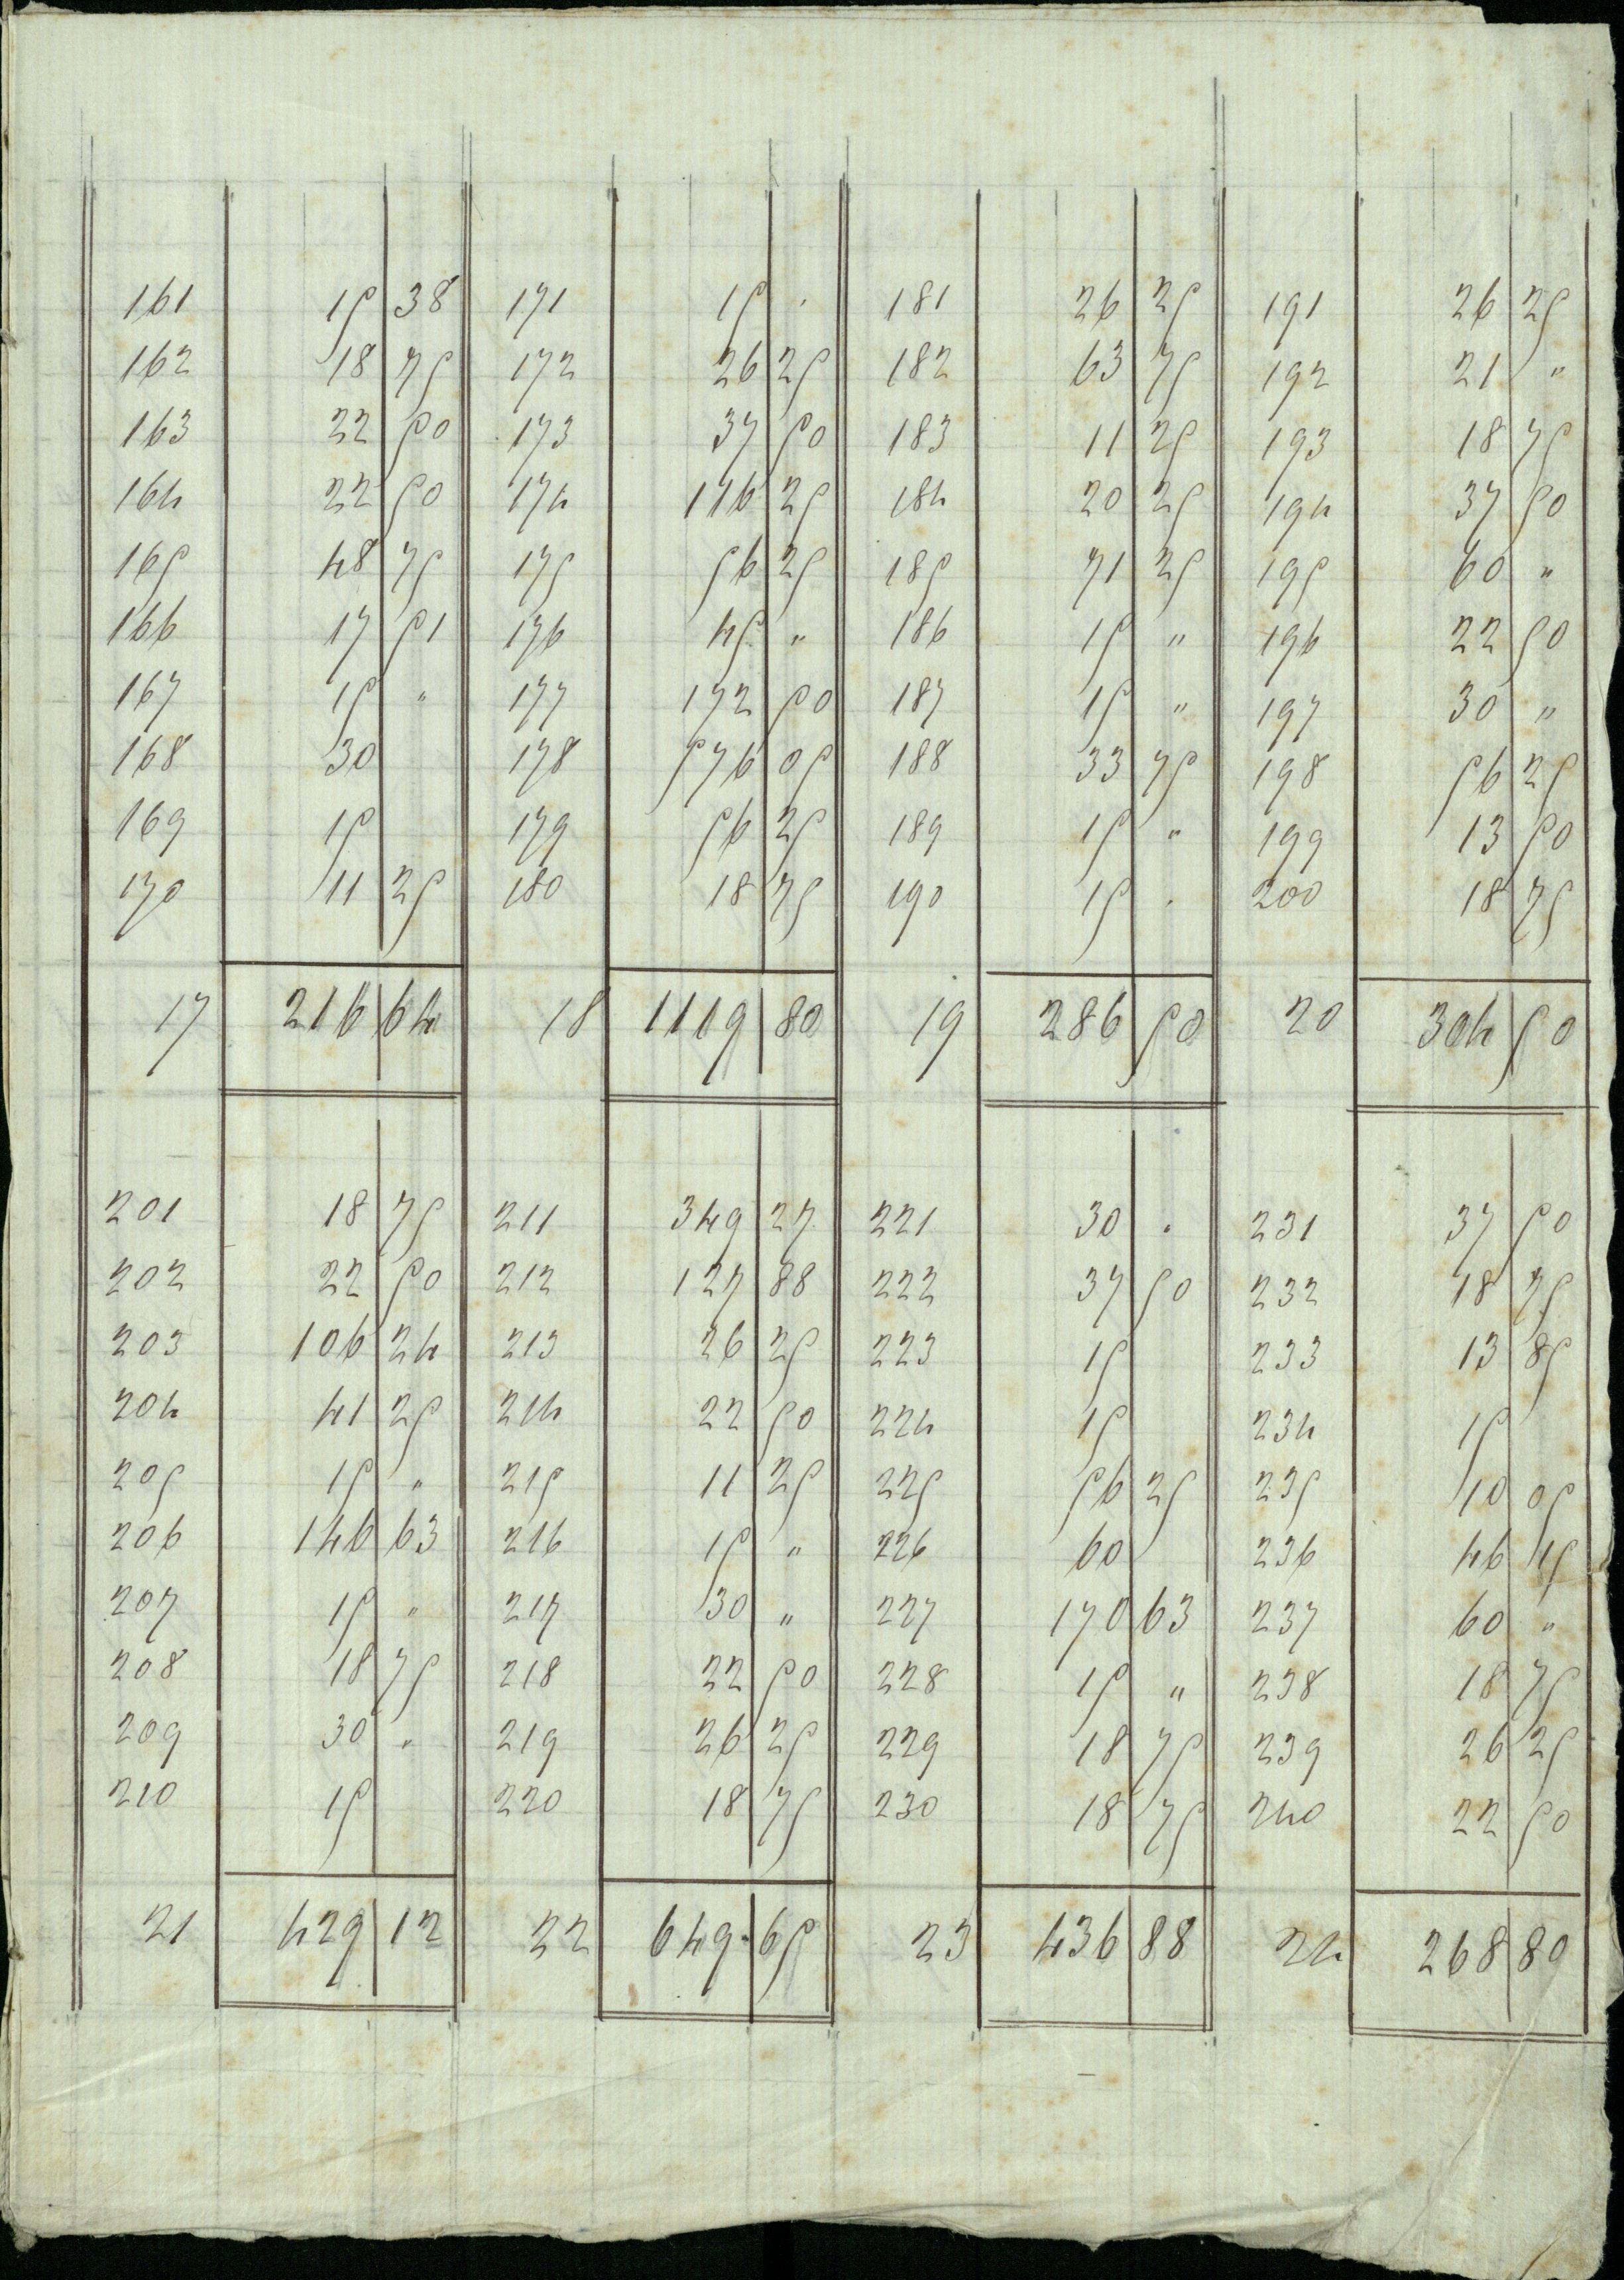 161 15 38 171 15 . 181 26 25 191 26 25
162 18 75 172 26 25 182 63 75 192 21 "
163 22 50 173 37 50 183 11 25 193 18 75
164 22 50 174 116 25 184 20 25 194 37 50
165 48 75 175 56 25 185 71 25 195 60 "
166 17 51 176 45 " 186 15 " 196 22 50
167 15 " 177 172 50 187 15 " 197 30 "
168 30 178 576 05 188 33 75 198 56 25
169 15 179 56 25 189 15 " 199 13 50
170 11 25 180 18 75 190 15 . 200 18 75
17 216 64 18 1119 80 19 286 50 20 304 50
201 18 75 211 349 27 221 30 . 231 37 50
202 22 50 212 127 88 222 37 50 232 18 75
203 106 24 213 26 25 223 15 233 13 85
204 41 25 214 22 50 224 15 234 15
205 15 " 215 11 25 225 56 25 235 10 05
206 146 63 216 15 " 226 60 236 46 15
207 15 " 217 30 " 227 170 63 237 60 "
208 18 75 218 22 50 228 15 " 238 18 75
209 30 " 219 26 25 229 18 75 239 26 25
210 15 220 18 75 230 18 75 240 22 50
21 429 12 22 649 65 23 436 88 24 268 80